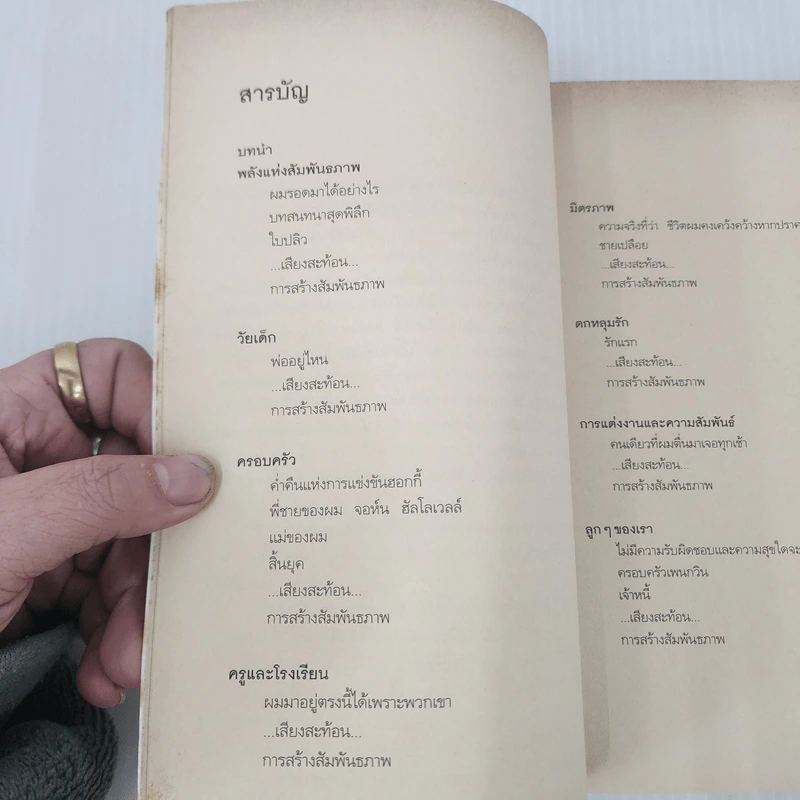 สารบัญ
บทนำ
พลังแห่งสัมพันธภาพ
ผมรอดมาได้อย่างไร
บทสนทนาสุดพิลึก
ใบปลิว
...เสียงสะท้อน...
การสร้างสัมพันธภาพ
วัยเด็ก
พ่ออยู่ไหน
...เสียงสะท้อน...
การสร้างสัมพันธภาพ
ครอบครัว
ค่ำคืนแห่งการแข่งขันฮอกกี้
พี่ชายของผม จอห์น ฮัลโลเวลล์
แม่ของผม
สิ้นยุค
...เสียงสะท้อน...
การสร้างสัมพันธภาพ
ครูและโรงเรียน
ผมมาอยู่ตรงนี้ได้เพราะพวกเขา
...เสียงสะท้อน...
การสร้างสัมพันธภาพ
มิตรภาพ
ความจริงที่ว่า ชีวิตผมคงเคว้งคว้างหากปราศ
ชายเปลือย
...เสียงสะท้อน...
การสร้างสัมพันธภาพ
ตกหลุมรัก
รักแรก
...เสียงสะท้อน...
การสร้างสัมพันธภาพ
การแต่งงานและความสัมพันธ์
คนเดียวที่ผมตื่นมาเจอทุกเช้า
...เสียงสะท้อน...
การสร้างสัมพันธภาพ
ลูก ๆ ของเรา
ไม่มีความรับผิดชอบและความสุขใดจะ
ครอบครัวเพนกวิน
เจ้าหนี้
...เสียงสะท้อน...
การสร้างสัมพันธภาพ